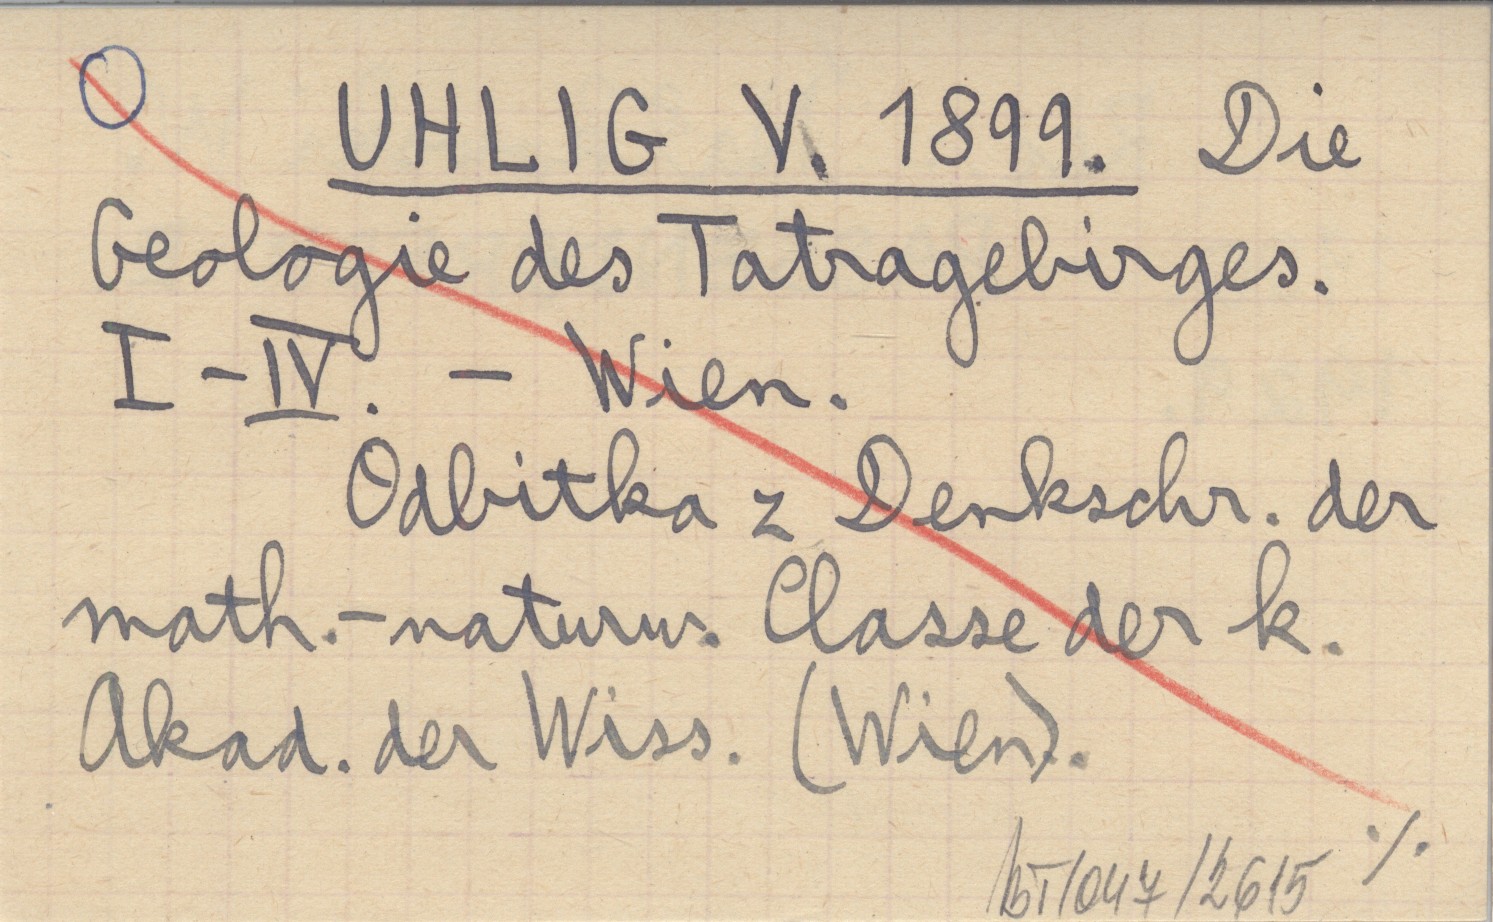 UHLIG V. 1899. Die
Geologie des Tatragebirges.
I-IV. - Wien.
Odbitka z Denkschr. der
math.-naturw. Classe der k.
Akad. der Wiss. (Wien).
./.
BT/047/2615